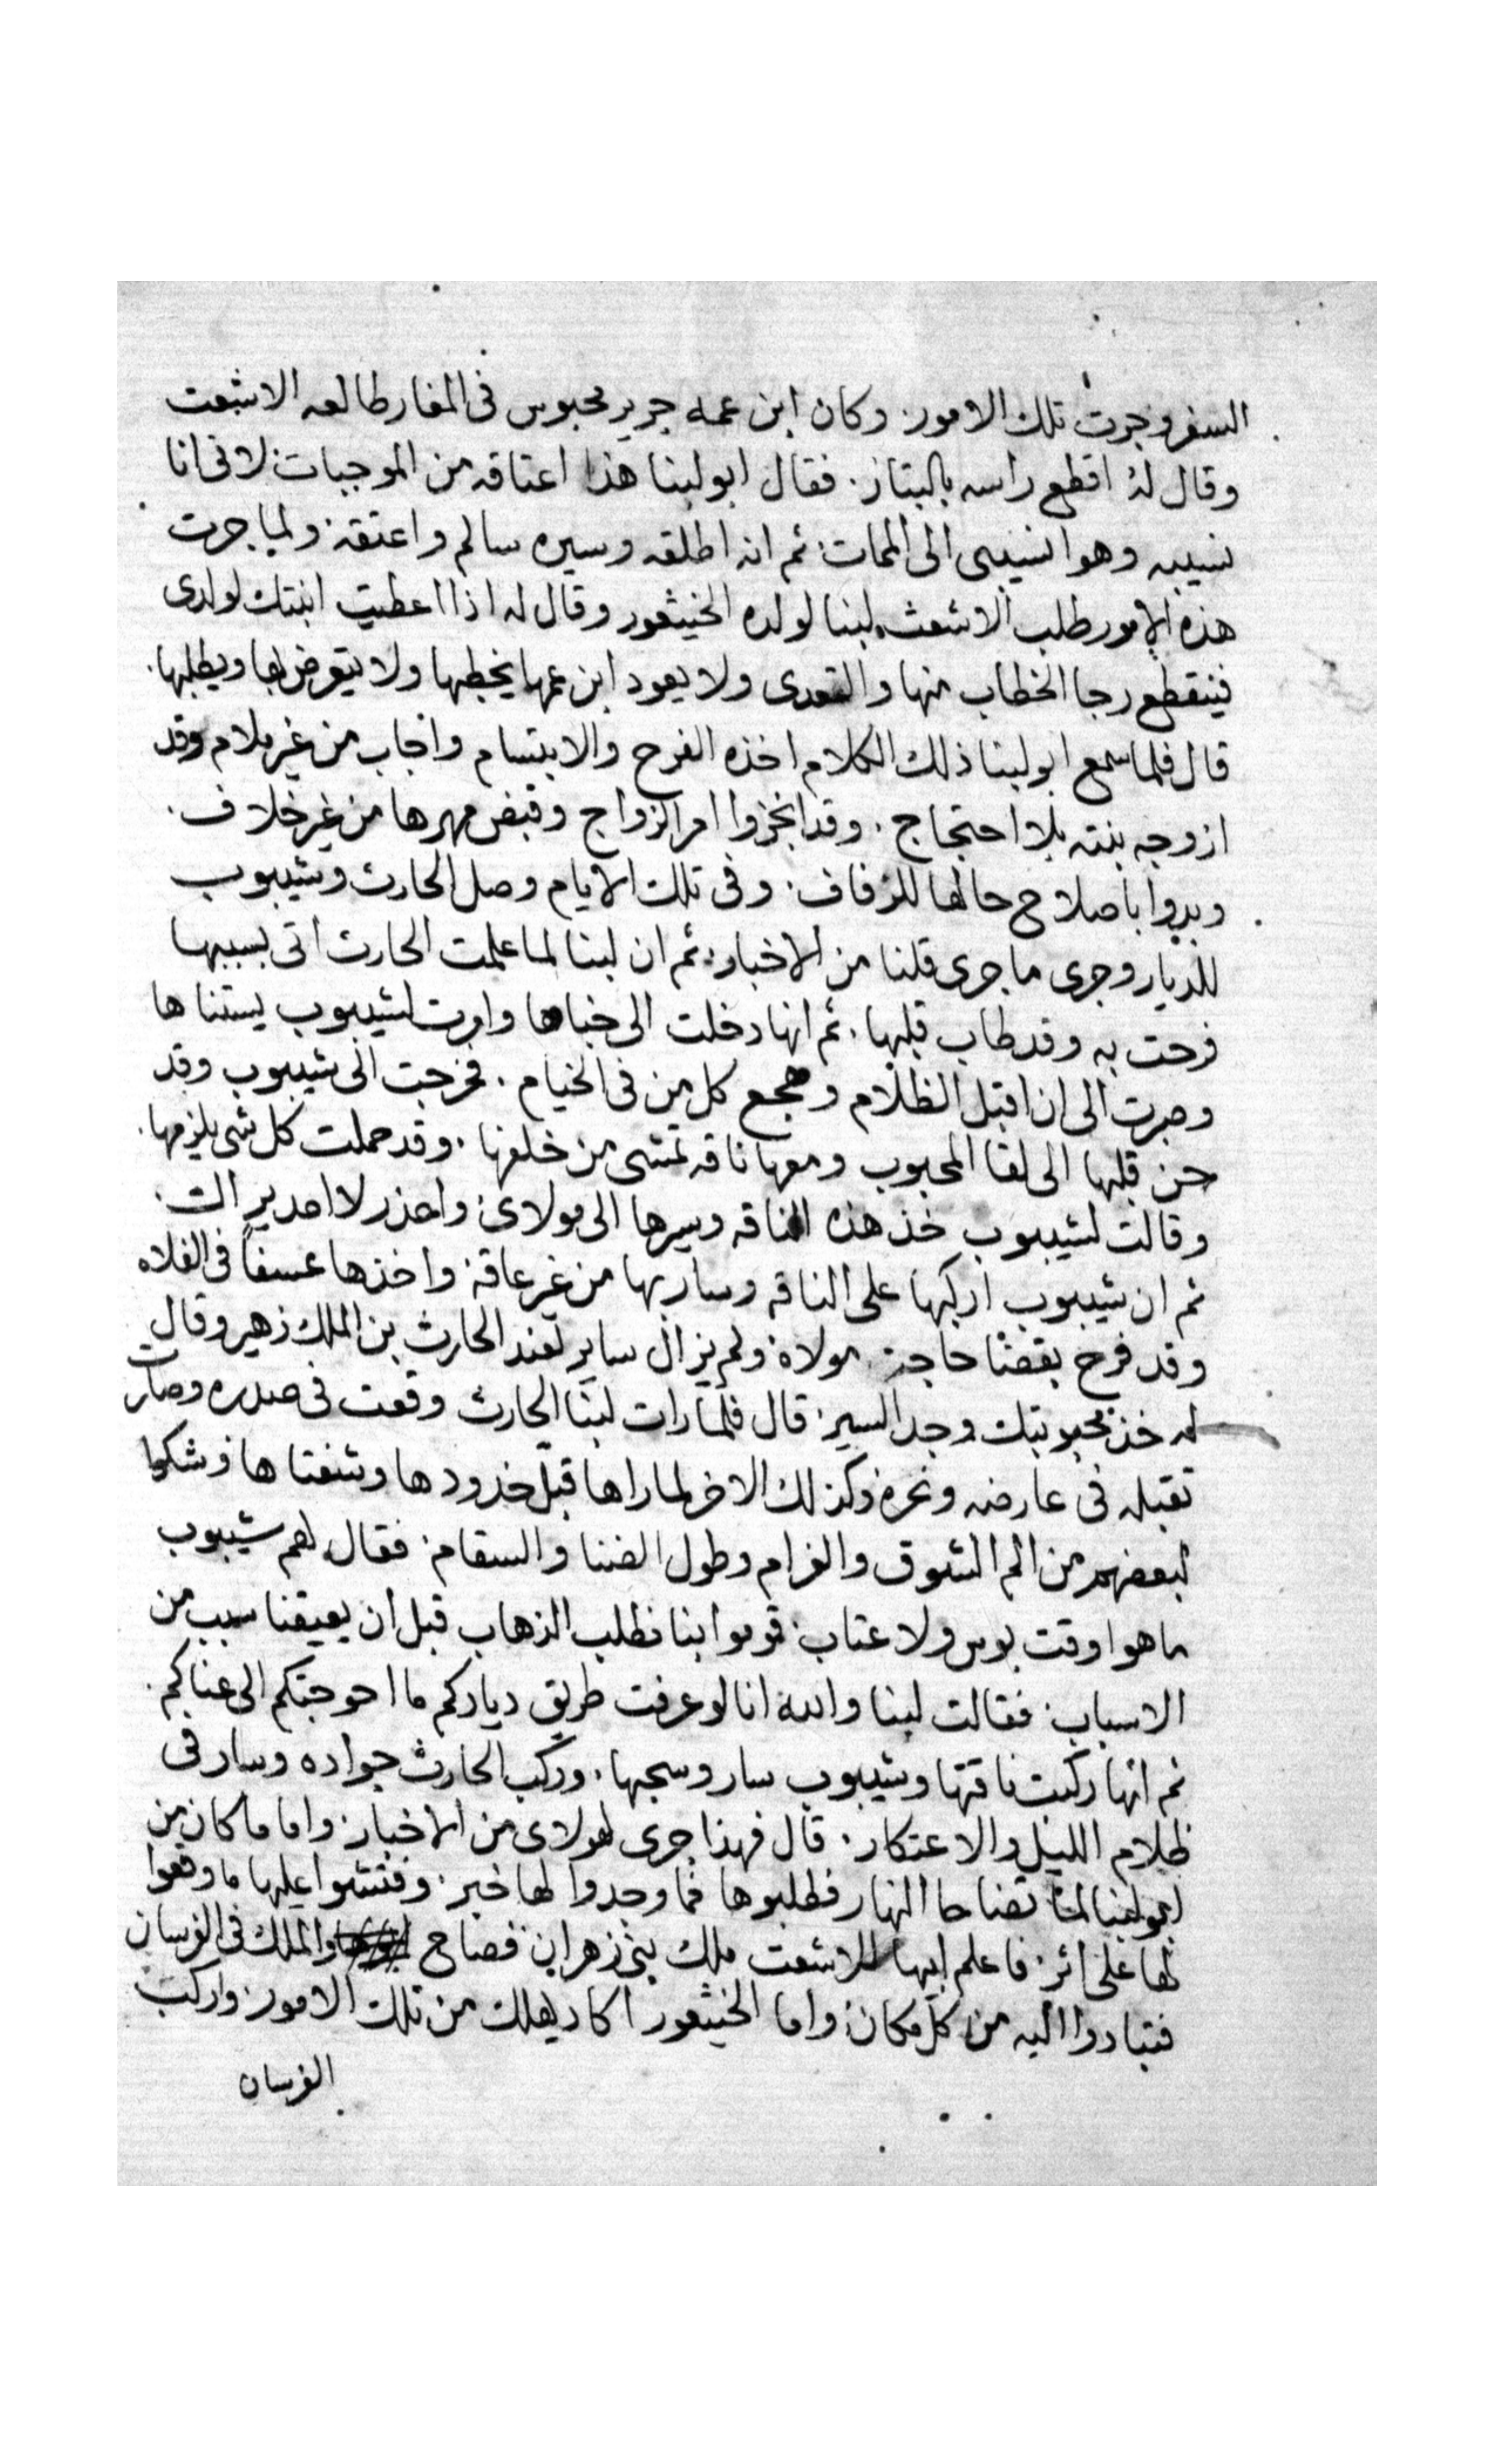 السفر وجرت تلك الامور. وكان ابن عمه جرير محبوس فى المغار طالعه الاشعت
وقال لهُ اقطع راسه بالبتار. فقال ابو لبنا هذا اعتاقه من الموجبات: لانى انا
نسيبه وهوا نسيبى الى الممات: ثم انه اطلقه وسيره سالم واعتقه: ولما جرت
هذه الامور طلب الاشعث لبنا لولده الخيثعور وقال له اذا اعطيت ابنتك لولدى
فينقطع رجا الخطاب منها والتعدى ولا يعود ابن عمها يخطبها ولا يتعرض لها ويطلبها.
قال فلما سمع ابو لبنا ذلك الكلام اخذه الفرح والابتسام واجاب من غير ملام وقد
ازوجه بنته بلا احتجاج. وقد انجزوا امر الزواج وقبض مهرها من غير خلاف.
وبدوا باصلاح حالها للزفاف. وفى تلك الايام وصل الحارث وشيبوب
للديار وجرى ما جرى قلنا من الاخبار: ثم ان لبنا لما علمت الحارث اتى بسببها
فرحت به وقد طاب قلبها. ثم انها دخلت الى خباها وامرت لشيبوب يستناها
وصبرت الى ان اقبل الظلام وهجع كل من فى الخيام. فخرجت الى شيبوب وقد
حن قلبها الى لقا المحبوب ومعها ناقه تمشى من خلفها. وقد حملت كل شى يلزمها.
وقالت لشيبوب خذ هذه الناقه وسيرها الى مولاى: واحذر لا احد يراك.
ثم ان شيبوب اركبها على الناقه وسار بها من غير عاقه: واخذها عسفاً فى الفلاه
وقد فرح بقضا حاجة مولاه: ولم يزال ساير لعند الحارث بن الملك زهير وقال
له خذ محبوبتك وجد السير: قال فلما رات لبنا الحارث وقعت فى صدره وصارت
تقبله فى عارضه ونحره: وكذلك الاخر لما راها قبل خدودها وشفتاها: وشكوا
لبعضهم من الم الشوق والغرام وطول الضنا والسقام: فقال لهم شيبوب
ما هوا وقت بوس ولا عتاب: قوموا بنا نطلب الذهاب قبل ان يعيقنا سبب من
الاسباب: فقالت لبنا والله انا لو عرفت طريق دياركم ما احوجتكم الى عناكم.
ثم انها ركبت ناقتها وشيبوب سار وسحبها. وركب الحارث جواده وسار فى
ظلام الليل والاعتكار: قال فهذا جرى لهولاى من الاخبار: واما ما كان من
ابو لبنا لما تضاحا النهار فطلبوها فما وجدوا لها خبر: وفتشوا عليها ما وقعوا
لها على اثر: فاعلم ابيها الاشعت ملك بنى زهران فصاح الملك فى الفرسان
فتبادروا اليه من كل مكان: واما الخيثعور اكاد يهلك من تلك الامور: واركب
الفرسان